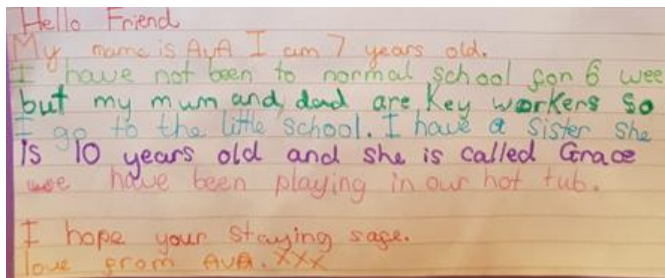 Hello Friend
My name is AvA I am 7 years old.
I have not been to normal school for 6 wee
but my mum and dad are Key workers so
I go to the little school. I have a Sister she
is 10 years old and she is called Grace
we have been playing in our hot tub.
I hope your staying safe.
love from AvA. xxx